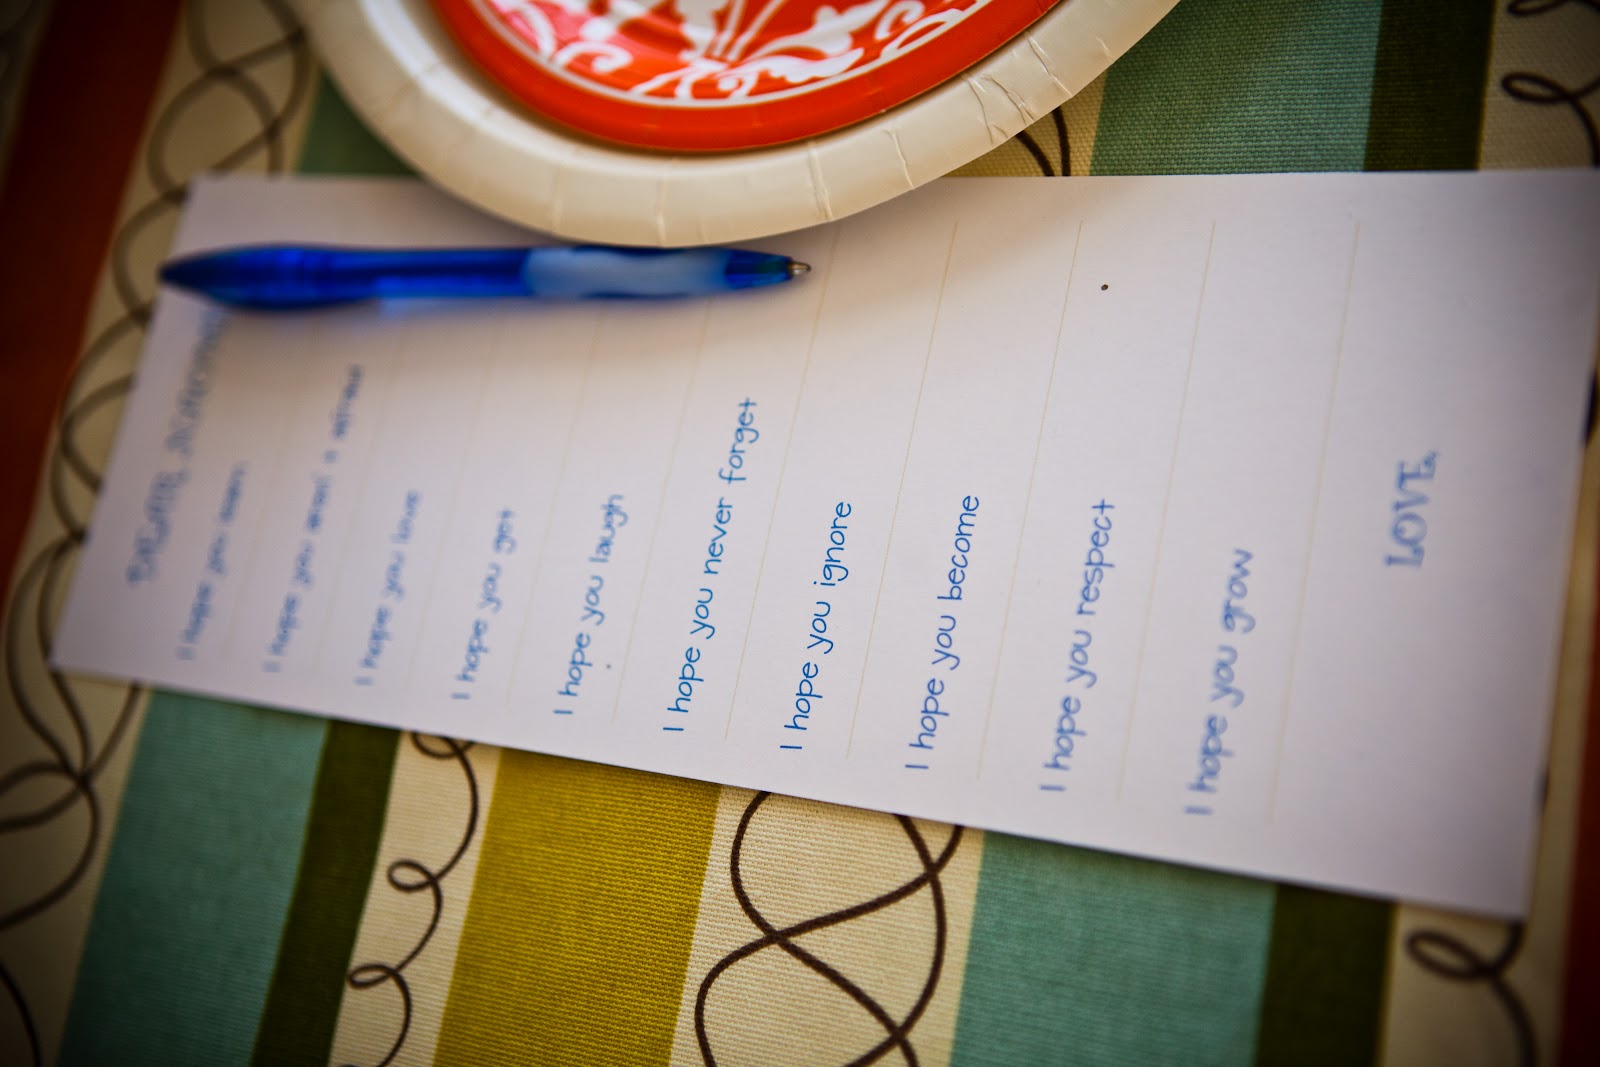 DEAR
I hope you learn
I hope you aren't afraid
I hope you love
I hope you get
I hope you laugh
I hope you never forget
I hope you ignore
I hope you become
I hope you respect
I hope you grow
LOVE,